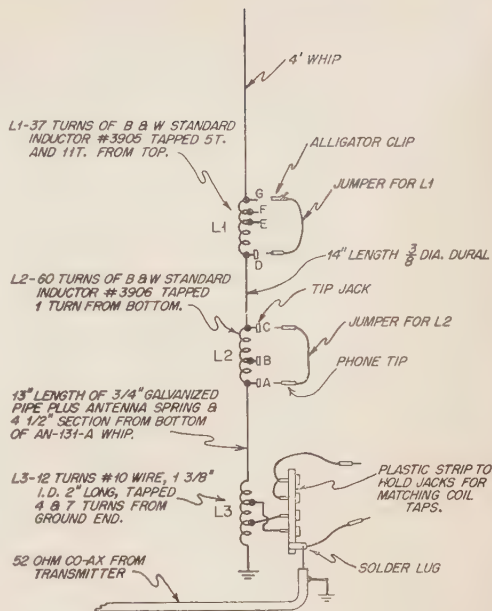 4' WHIP
L1-37 TURNS OF B & W STANDARD
INDUCTOR #3905 TAPPED 5T.
AND 11T. FROM TOP.
ALLIGATOR CLIP
G
F
E
L1
JUMPER FOR L1
D
14" LENGTH 3/8 DIA. DURAL
L2-60 TURNS OF B & W STANDARD
INDUCTOR #3906 TAPPED
1 TURN FROM BOTTOM.
TIP JACK
C
JUMPER FOR L2
L2
B
A
PHONE TIP
13" LENGTH OF 3/4" GALVANIZED
PIPE PLUS ANTENNA SPRING &
4 1/2" SECTION FROM BOTTOM
OF AN-131-A WHIP.
L3-12 TURNS #10 WIRE, 1 3/8"
I.D. 2" LONG, TAPPED
4 & 7 TURNS FROM
GROUND END.
L3
PLASTIC STRIP TO
HOLD JACKS FOR
MATCHING COIL
TAPS.
SOLDER LUG
52 OHM CO-AX FROM
TRANSMITTER